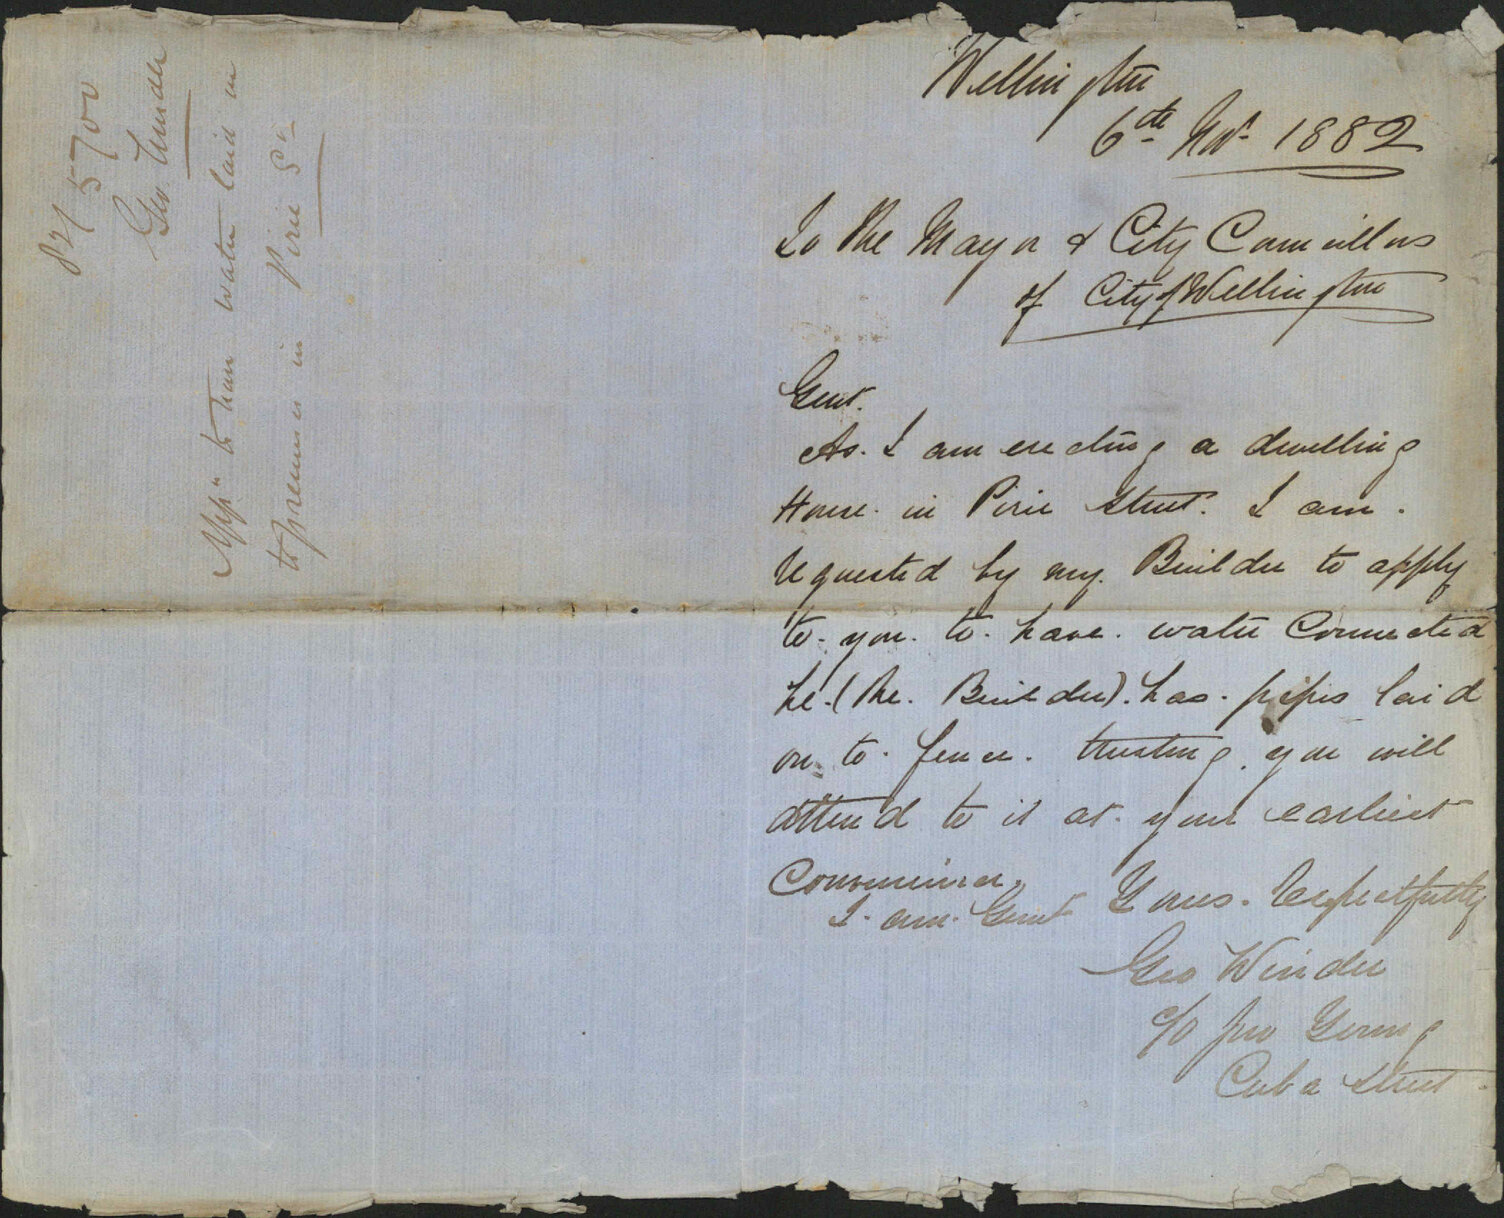 Wellington
6th Novr 1882
To The Mayor & City Councillors
of City of Wellington
Gent.
As. I am erecting a dwelling
House. in Pirie Street. I am.
requested by my. Builder to apply
to. you. to. have. water Connected
he. (the. Builder). has. pipes laid
on to. fence. trusting. you will
attend to it at. your earliest
Convenience.
I. am. Gent Yours. respectfully
Geo Winder
c/o Jno Young
Cuba Street
82/5700
Geo Winder
Appn to have water laid on
to premises in Pirie St